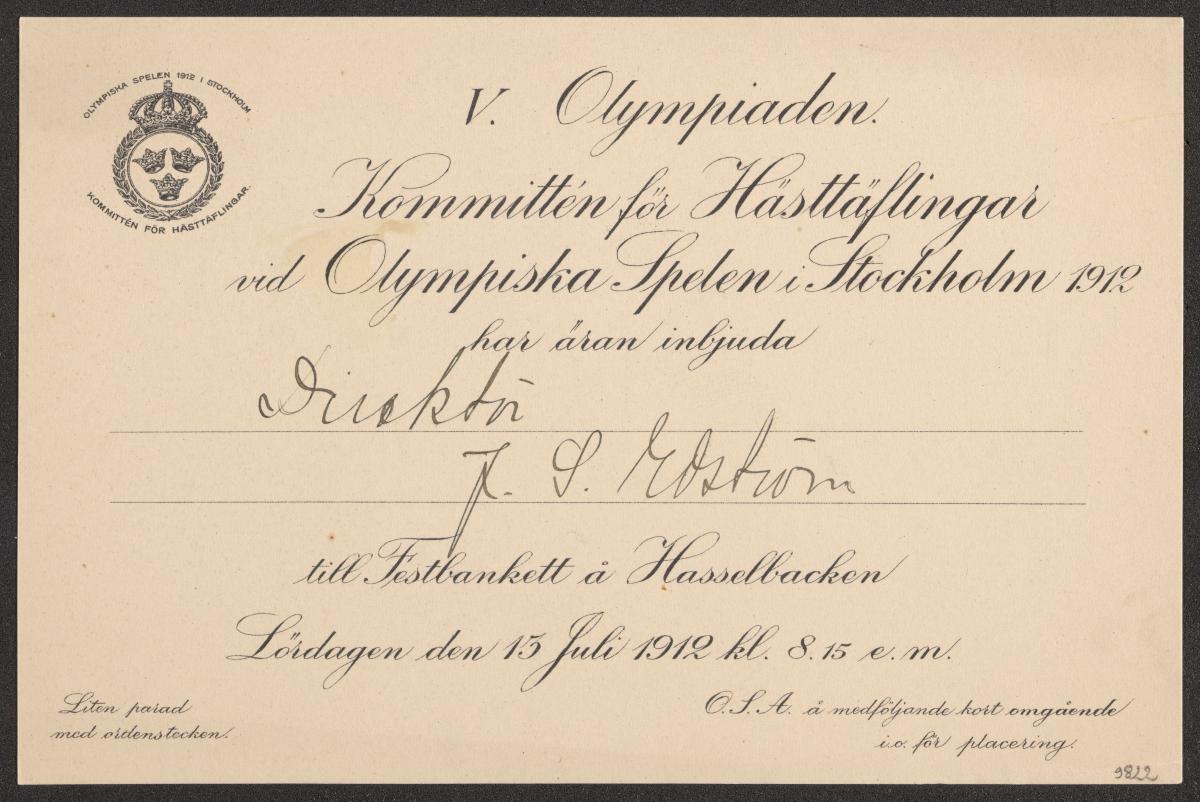 OLYMPISKA SPELEN 1912 I STOCKHOLM
KOMMITTÉN FÖR HÄSTTÄFLINGAR.
V. Olympiaden.
Kommittén för Hästtäflingar
vid Olympiska Spelen i Stockholm 1912
har äran inbjuda
Direktör
J. S. Edström
till Festbankett å Hasselbacken
Lördagen den 13 Juli 1912 kl. 8.15 e.m.
Liten parad
med ordenstecken.
O.S.A. å medföljande kort omgående
i.o. för placering.
9822